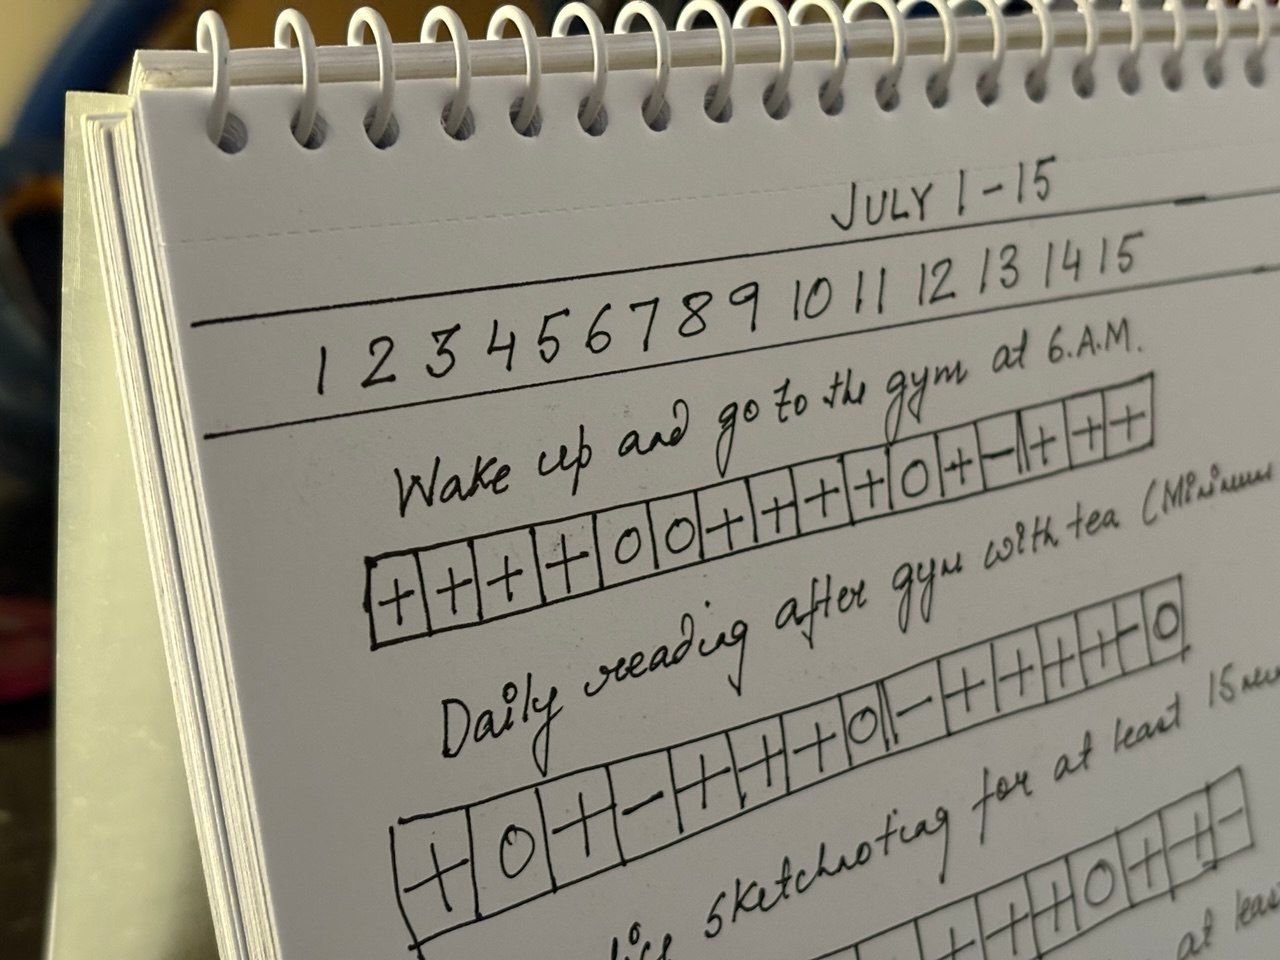 JULY 1-15
1 2 3 4 5 6 7 8 9 10 11 12 13 14 15
Wake up and go to the gym at 6.A.M.
+ + + + 0 0 + + + + 0 + - + + +
Daily reading after gym with tea (Minimum
+ 0 + - + + + 0 - + + + + - 0
sketchnoting for at least 15
+ + + 0 + + -
at least